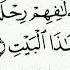 لَٰفِهِمْ رِحْلَ
هَٰذَا ٱلْبَيْتِ